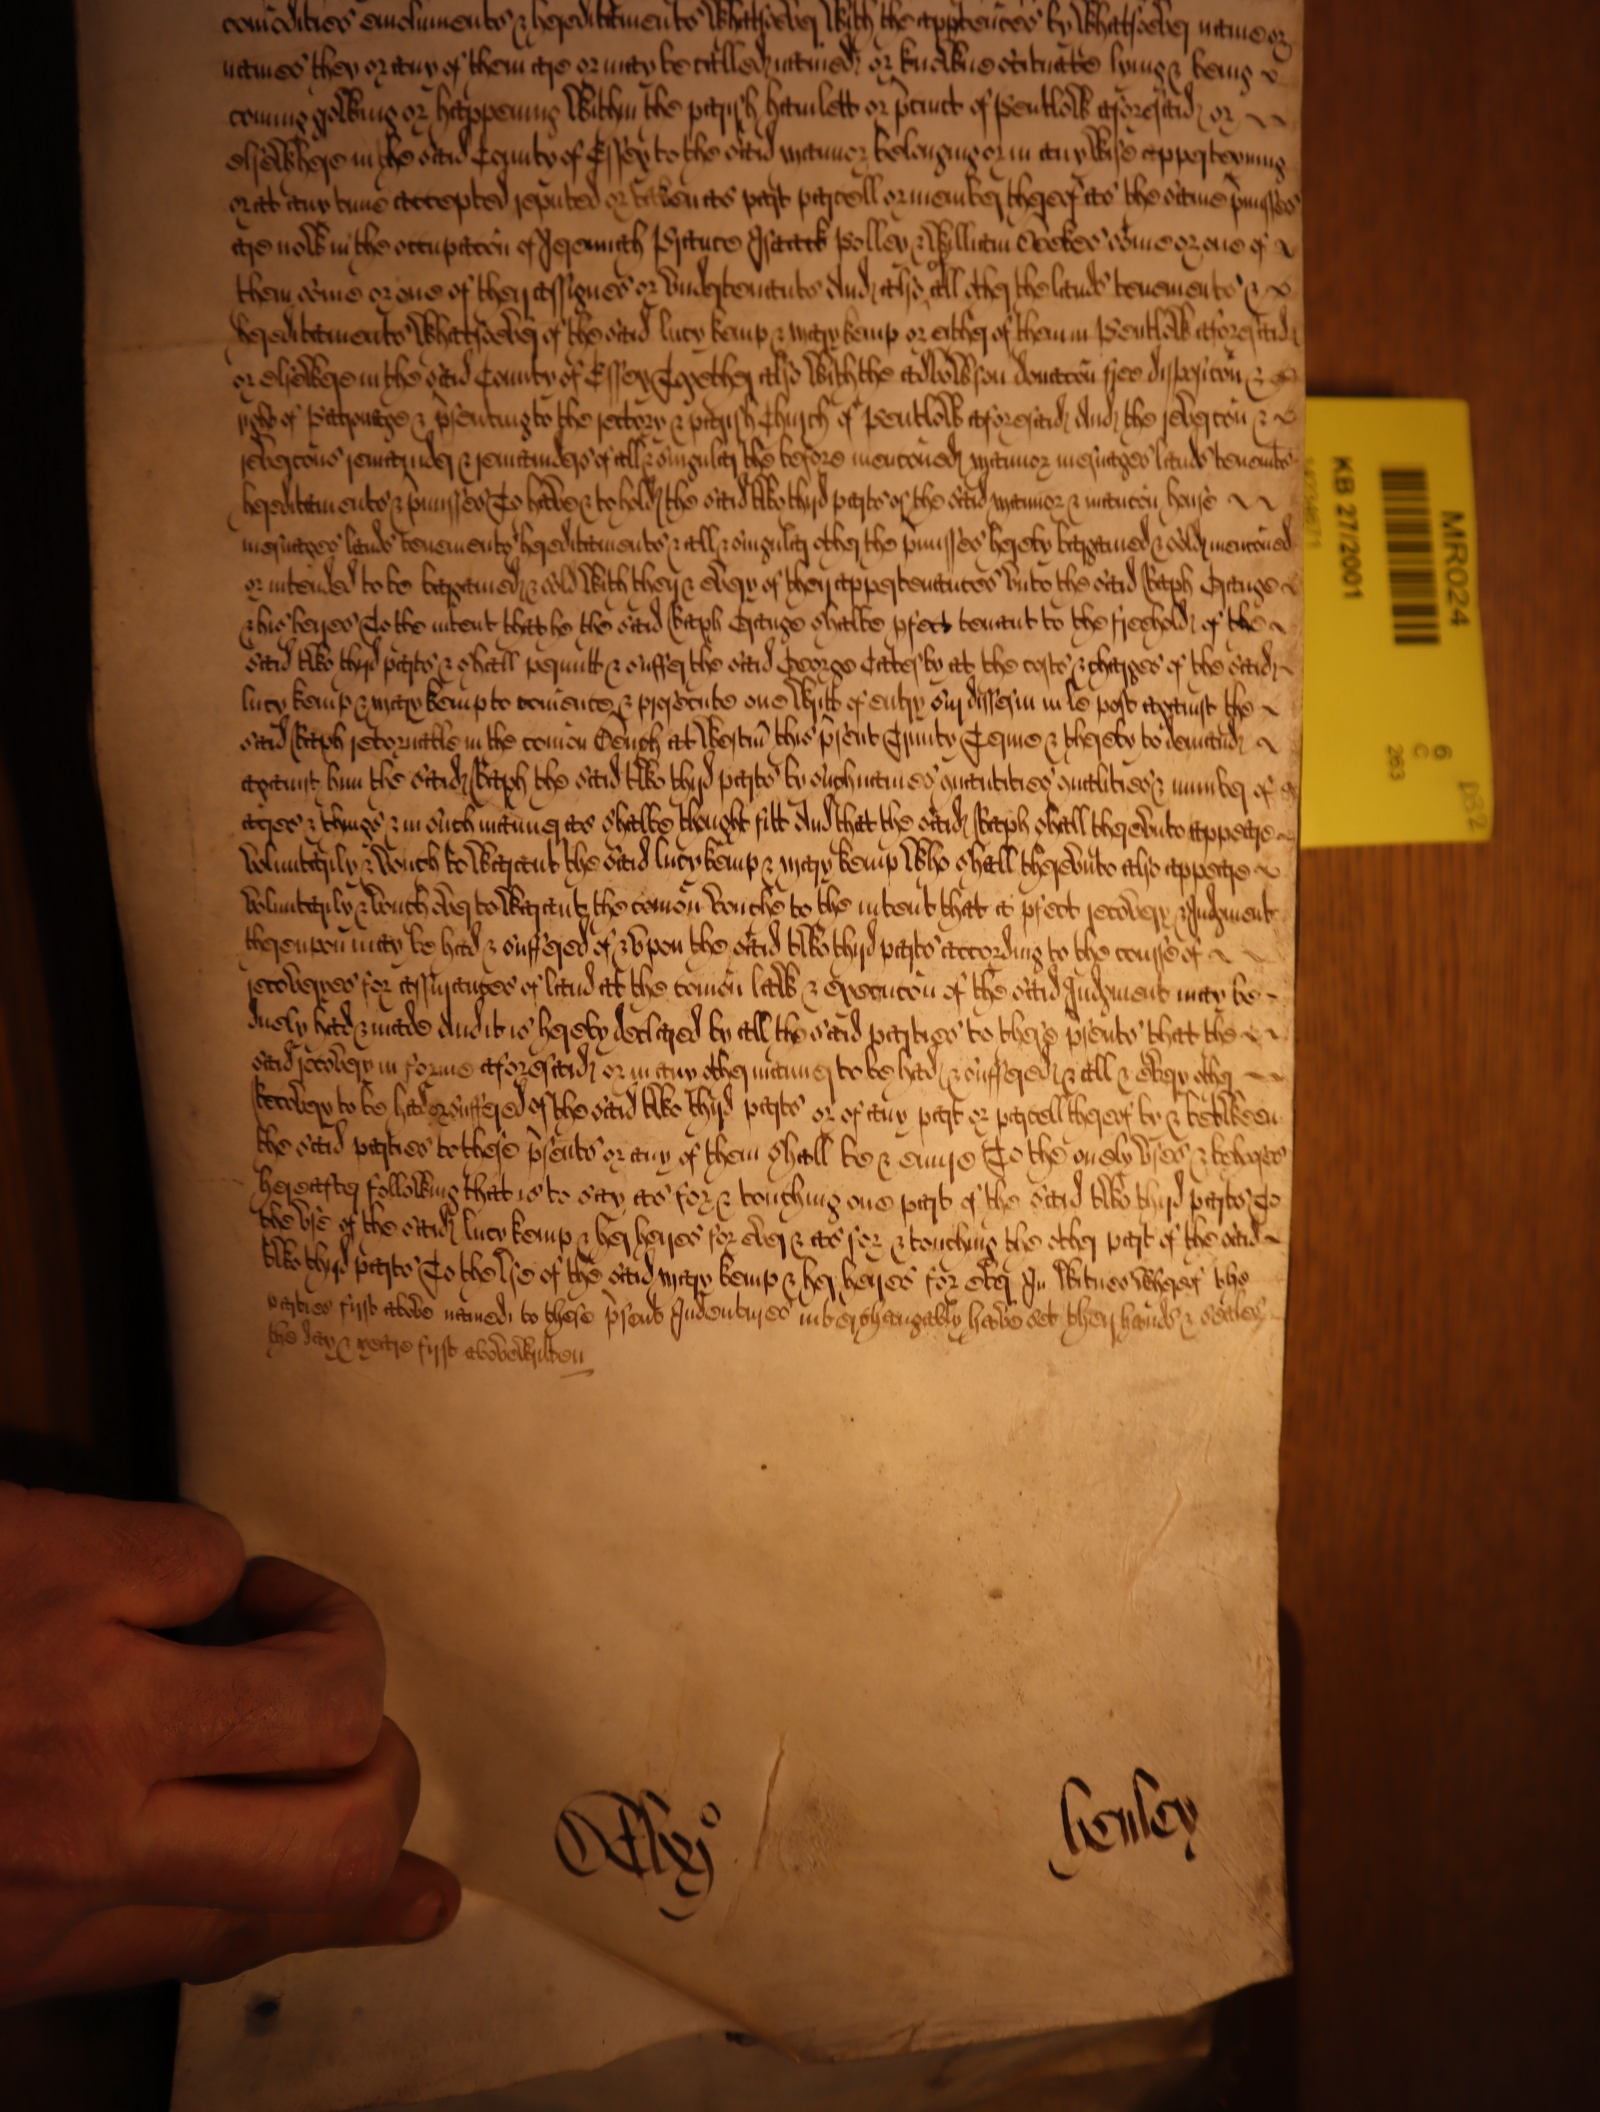 comodities emoluments & hereditaments whatsoever with the appten̄ces by whatsoever name or
names they or any of them are or may be called named or knowne scituate lying & being
coming growing or happening within the parish hamlett or p̄cinct of Pentlow aforesaid or
elsewhere in the said County of Essex to the said mannor belonging or in any wise apperteyning
or at any time accepted reputed or taken as part parcell or member thereof as the same p̄misses
are now in the occupac̄on of Jeremiah Prance Isaack Polley & William some or one of
them some or one of their assignes or undertenants And also all other the lands tenements &
hereditaments whatsoever of the said Lucy Kemp & Mary Kemp or either of them in Pentlow aforesaid
or elsewhere in the said County of Essex Together also with the advowson donac̄on free disposic̄on &
right of Patronage & p̄senting to the rectory & parish Church of Pentlow aforesaid And the rever̄con &
rever̄cons remainder & remainders of all & singular the before menc̄oned mannor messuages lands tenemts
hereditaments & p̄misses To have & to hold the said two third parts of the said mannor & manc̄on house
messuages lands tenements hereditaments & all & singular other the p̄misses hereby bargained & sold menc̄oned
or intended to be bargained & sold with their & every of their appertenances unto the said Raph Grange
& his heires To the intent that he the said Raph Grange shalbe p̄fect tenant to the freehold of the
said two third parts & shall permitt & suffer the said George Catesby at the costs & charges of the said
Lucy Kemp & Mary Kemp to com̄ence & prosecute one writt of entry sur disseisin in le post against the
said Raph retornable in the com̄on Bench at Westm̄ this p̄sent Trinity Terme & thereby to demand
against him the said Raph the said two third parts by such names quantities qualities & number of
acres & things & in such manner as shalbe thought fitt And that the said Raph shall thereunto appeare
voluntarily & vouch to warrant the said Lucy Kemp & Mary Kemp who shall thereunto also appeare
voluntarily & vouch over to warrant the com̄on vouchee to the intent that a p̄fect recovery & Judgment
thereupon may be had & suffered of & upon the said two third parts according to the course of
recoveryes for assurances of land at the com̄on law & execuc̄on of the said Judgment may be
duely had & made And it is hereby declared by all the said parties to these p̄sents that the
said recovery in forme aforesaid or in any other manner to be had & suffered & all & every other
Recovery to be had or suffered of the said two third parts or of any part or parcell thereof by & betweene
the said parties to these p̄sents or any of them shall be & enure To the onely uses & behoofes
hereafter following that is to say as for & touching one part of the said two third parts To
the use of the said Lucy Kemp & her heires for ever & as for & touching the other part of the said
two third parts To the use of the said Mary Kemp & her heires for ever In Witnes whereof the
parties first above named to these p̄sent Indentures interchangably have set their hands & seales
the day & yeare first abovewritten
Henley
MR024
KB 27/2001
6
C
263